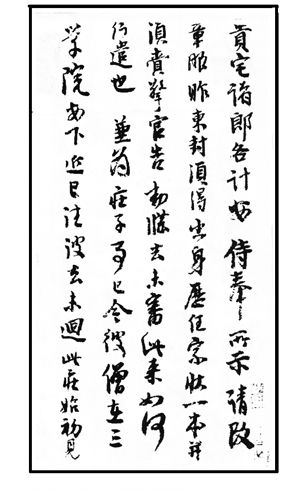 貢宅諸郎各計安侍奉所示請改
章服昨東封須得出身歷任家狀一本并
須賫擎官告勅牒去未審此來如何
行遣也 兼為莊子事已令彼僧在三
學院安下近日往彼去未迴此莊始初見